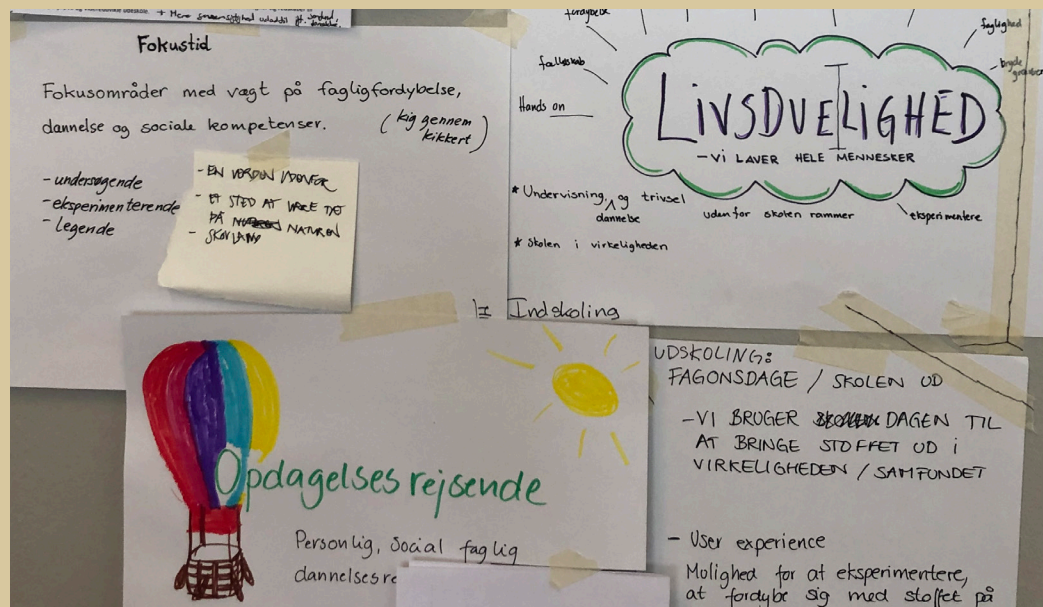 + Mere
Fokustid
Fokusområder med vægt på fagligfordybelse,
dannelse og sociale kompetenser.
(kig gennem
kikkert)
- undersøgende
- eksperimenterende
- legende
- EN VERDEN UDENFOR
- ET STED AT VÆRE TÆT
PÅ NATUREN
- SKOVLAND
fordybelse
fællesskab
Hands on
faglighed
bryde
LIVSDUELIGHED
- VI LAVER HELE MENNESKER
* Undervisning, og trivsel
dannelse
udenfor skolen rammer
eksperimentere
* Skolen i virkeligheden
Indskoling
Opdagelsesrejsende
Personlig, Social faglig
dannelsesre
UDSKOLING:
FAGONSDAGE / SKOLEN UD
- VI BRUGER DAGEN TIL
AT BRINGE STOFFET UD I
VIRKELIGHEDEN / SAMFUNDET
- User experience
Molighed for at eksperimentere,
at fordybe sig med stoffet på